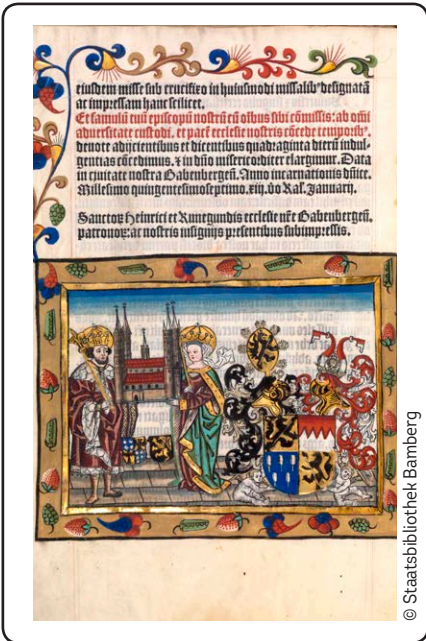 eiusdem misse sub crucifixo in huiusmodi missalibꝰ designatā
ac impressam hanc scilicet.
Et famulū tuū episcopū nostrū cū oībus sibi cōmissis: ab omī
aduersitate custodi. et pacē ecclesie nostris cōcede temporibꝰ.
deuote adijcientibus et dicentibus quadraginta dierū indul-
gentias cōcedimus. ⁊ in dn̄o misericorditer elargimur. Data
in ciuitate nostra Babenbergeñ. Anno incarnationis dn̄ice.
Millesimo quingentesimoseptimo. xiij. vo Kal. Januarij.
Sanctoꝝ Heinrici et Kunegundis ecclesie nr̄e Babenbergeñ.
patronoꝝ: ac nostris insignijs presentibus subimpressis.
© Staatsbibliothek Bamberg